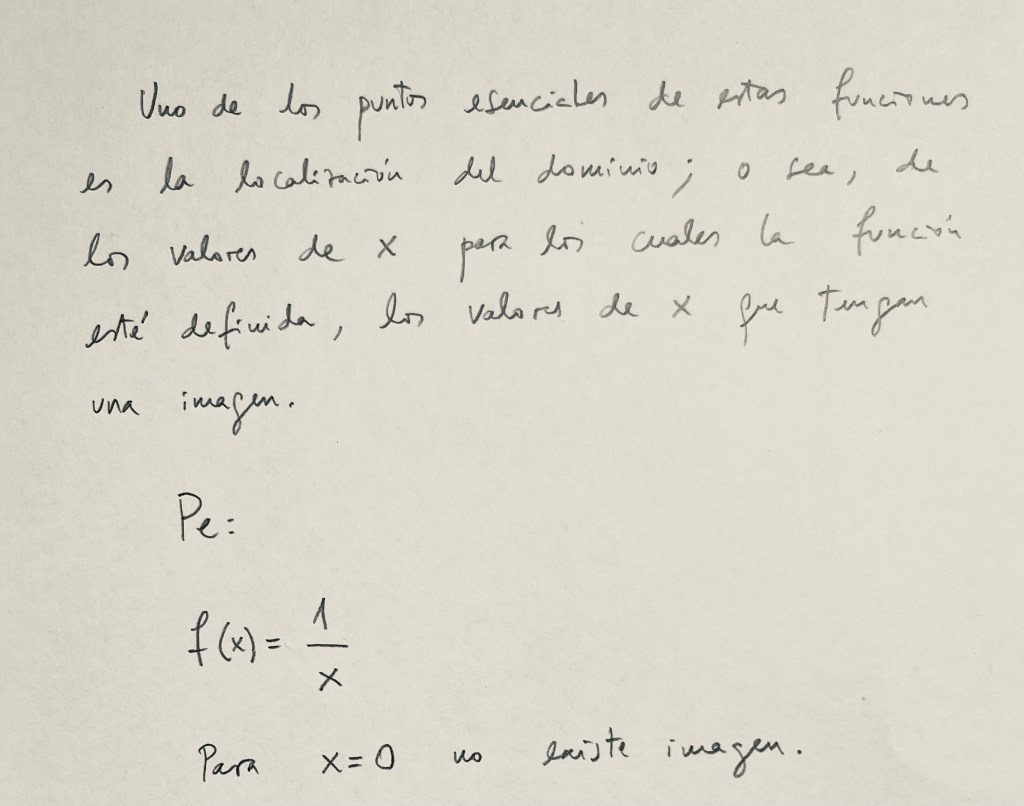 Uno de los puntos esenciales de estas funciones
es la localización del dominio; o sea, de
los valores de x para los cuales la función
esté definida, los valores de x que tengan
una imagen.
Pe:
f(x) = 1/x
Para x=0 no existe imagen.